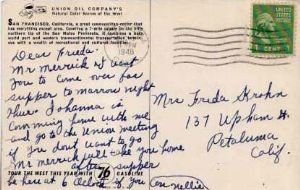 UNION OIL COMPANY'S
Natural Color Scenes of the West
SAN FRANCISCO, California, a great
has everything except area. Covering a
northern tip of the San Mateo Peninsula, it combines a
world port and
with a wealth of recreational and cultural
1948
Dear Freda:
Mr Merrick & I want
you to come over for
supper to marrow night
Thur. Johanna is
comming home with me
and go to the Union meeting
if you dont want to go
Mr Merrick will take you home
after supper
here at 6 O'clock if you
can Nellie
TOUR THE WEST THIS YEAR WITH 76 GASOLINE
1 CENT
Mrs Freda Krohn
137 Upham St
Petaluma
Calif.